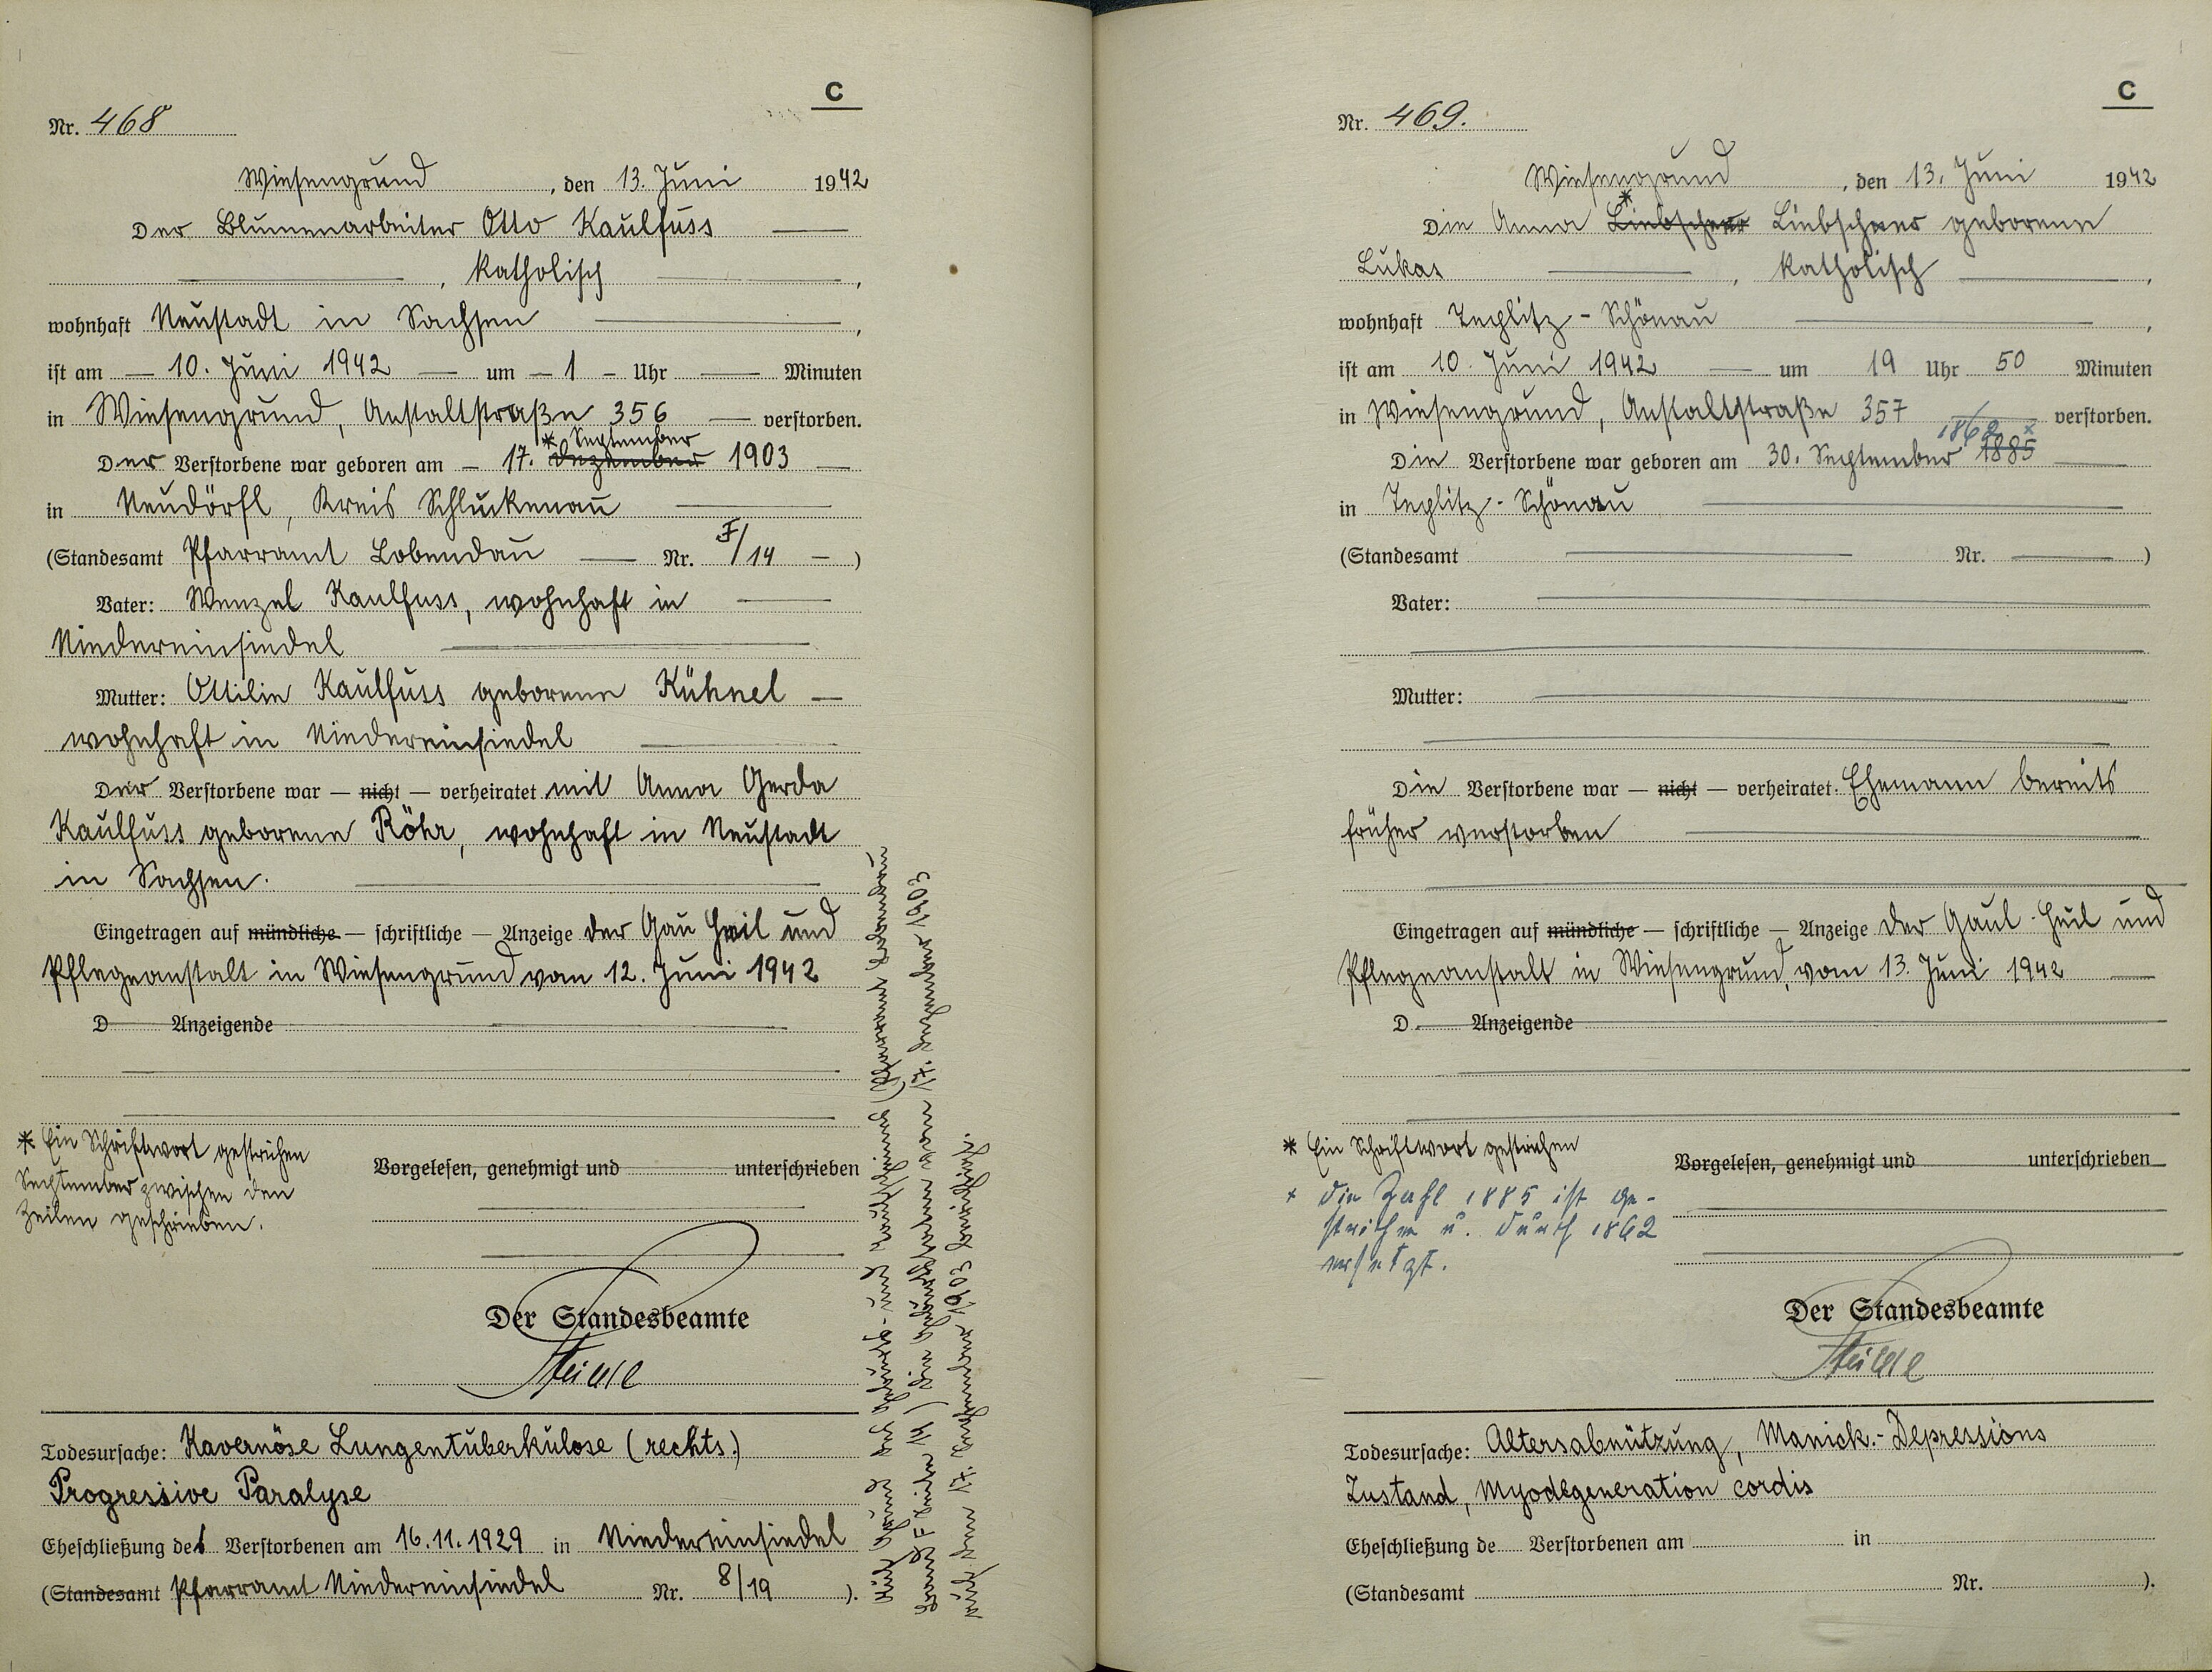 C
Nr. 468
Wiesengrund, den 13. Juni 1942
Der Blumenarbeiter Otto Kaulfuss
, katholisch ,
wohnhaft Neustadt in Sachsen ,
ist am — 10. Juni 1942 — um — 1 — Uhr — Minuten
in Wiesengrund, Anstaltstraße 356 — verstorben.
* September
Der Verstorbene war geboren am — 17. Dezember 1903 —
in Neudörfl, Kreis Schluckenau
(Standesamt Pfarramt Lobendau — Nr. F/14 — )
Vater: Wenzel Kaulfuss, wohnhaft in —
Niedereinsiedel
Mutter: Ottilie Kaulfuss geborene Kühnel —
wohnhaft in Niedereinsiedel
Der Verstorbene war — nicht — verheiratet mit Anna Gerda
Kaulfuss geborene Röhr, wohnhaft in Neustadt
in Sachsen.
Eingetragen auf mündliche — schriftliche — Anzeige der Gau Heil und
Pflegeanstalt in Wiesengrund vom 12. Juni 1942
D Anzeigende
* Ein Schriftwort gestrichen
September zwischen den
Zeilen geschrieben.
Vorgelesen, genehmigt und unterschrieben
Der Standesbeamte
Todesursache: Kavernöse Lungentuberkulose (rechts.)
Progressive Paralyse
Eheschließung des Verstorbenen am 16.11.1929 in Niedereinsiedel
(Standesamt Pfarramt Niedereinsiedel Nr. 8/19 ).
17. September 1903
17. Dezember 1903
C
Nr. 469.
Wiesengrund, den 13. Juni 1942
*
Die Anna Liebscher Liebscher geborene
Lukas , katholisch ,
wohnhaft Teplitz-Schönau ,
ist am 10. Juni 1942 — um 19 Uhr 50 Minuten
in Wiesengrund, Anstaltstraße 357 verstorben.
1862 x
Die Verstorbene war geboren am 30. September 1885
in Teplitz-Schönau
(Standesamt Nr. )
Vater:
Mutter:
Die Verstorbene war — nicht — verheiratet. Ehemann bereits
früher verstorben
Eingetragen auf mündliche — schriftliche — Anzeige der Gaul-Heil und
Pflegeanstalt in Wiesengrund, vom 13. Juni 1942 —
D. Anzeigende
* Ein Schriftwort gestrichen
x die Zahl 1885 ist ge-
strichen u. durch 1862
ersetzt.
Vorgelesen, genehmigt und unterschrieben
Der Standesbeamte
Todesursache: Altersabnützung, Manick.-Depressions
Zustand, Myodegeneration cordis
Eheschließung de Verstorbenen am in
(Standesamt Nr. ).